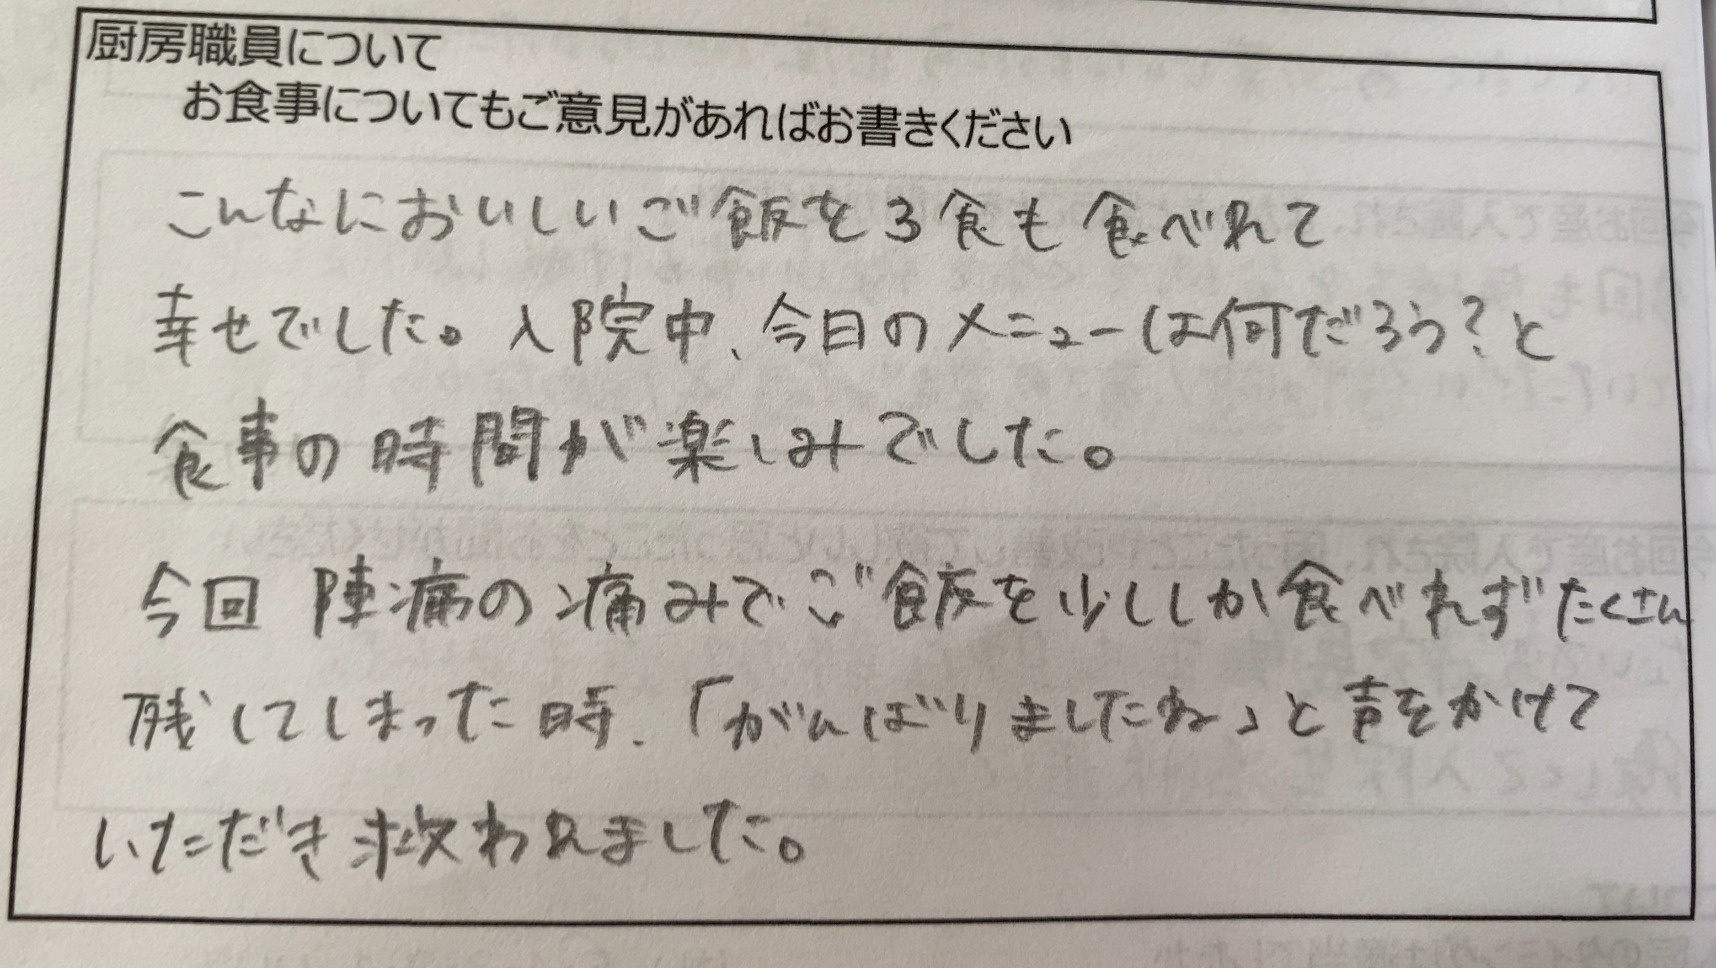 厨房職員について
お食事についてもご意見があればお書きください
こんなにおいしいご飯を3食も食べれて
幸せでした。入院中、今日のメニューは何だろう?と
食事の時間が楽しみでした。
今回 陣痛の痛みでご飯を少ししか食べれずたくさん
残してしまった時、「がんばりましたね」と声をかけて
いただき救われました。